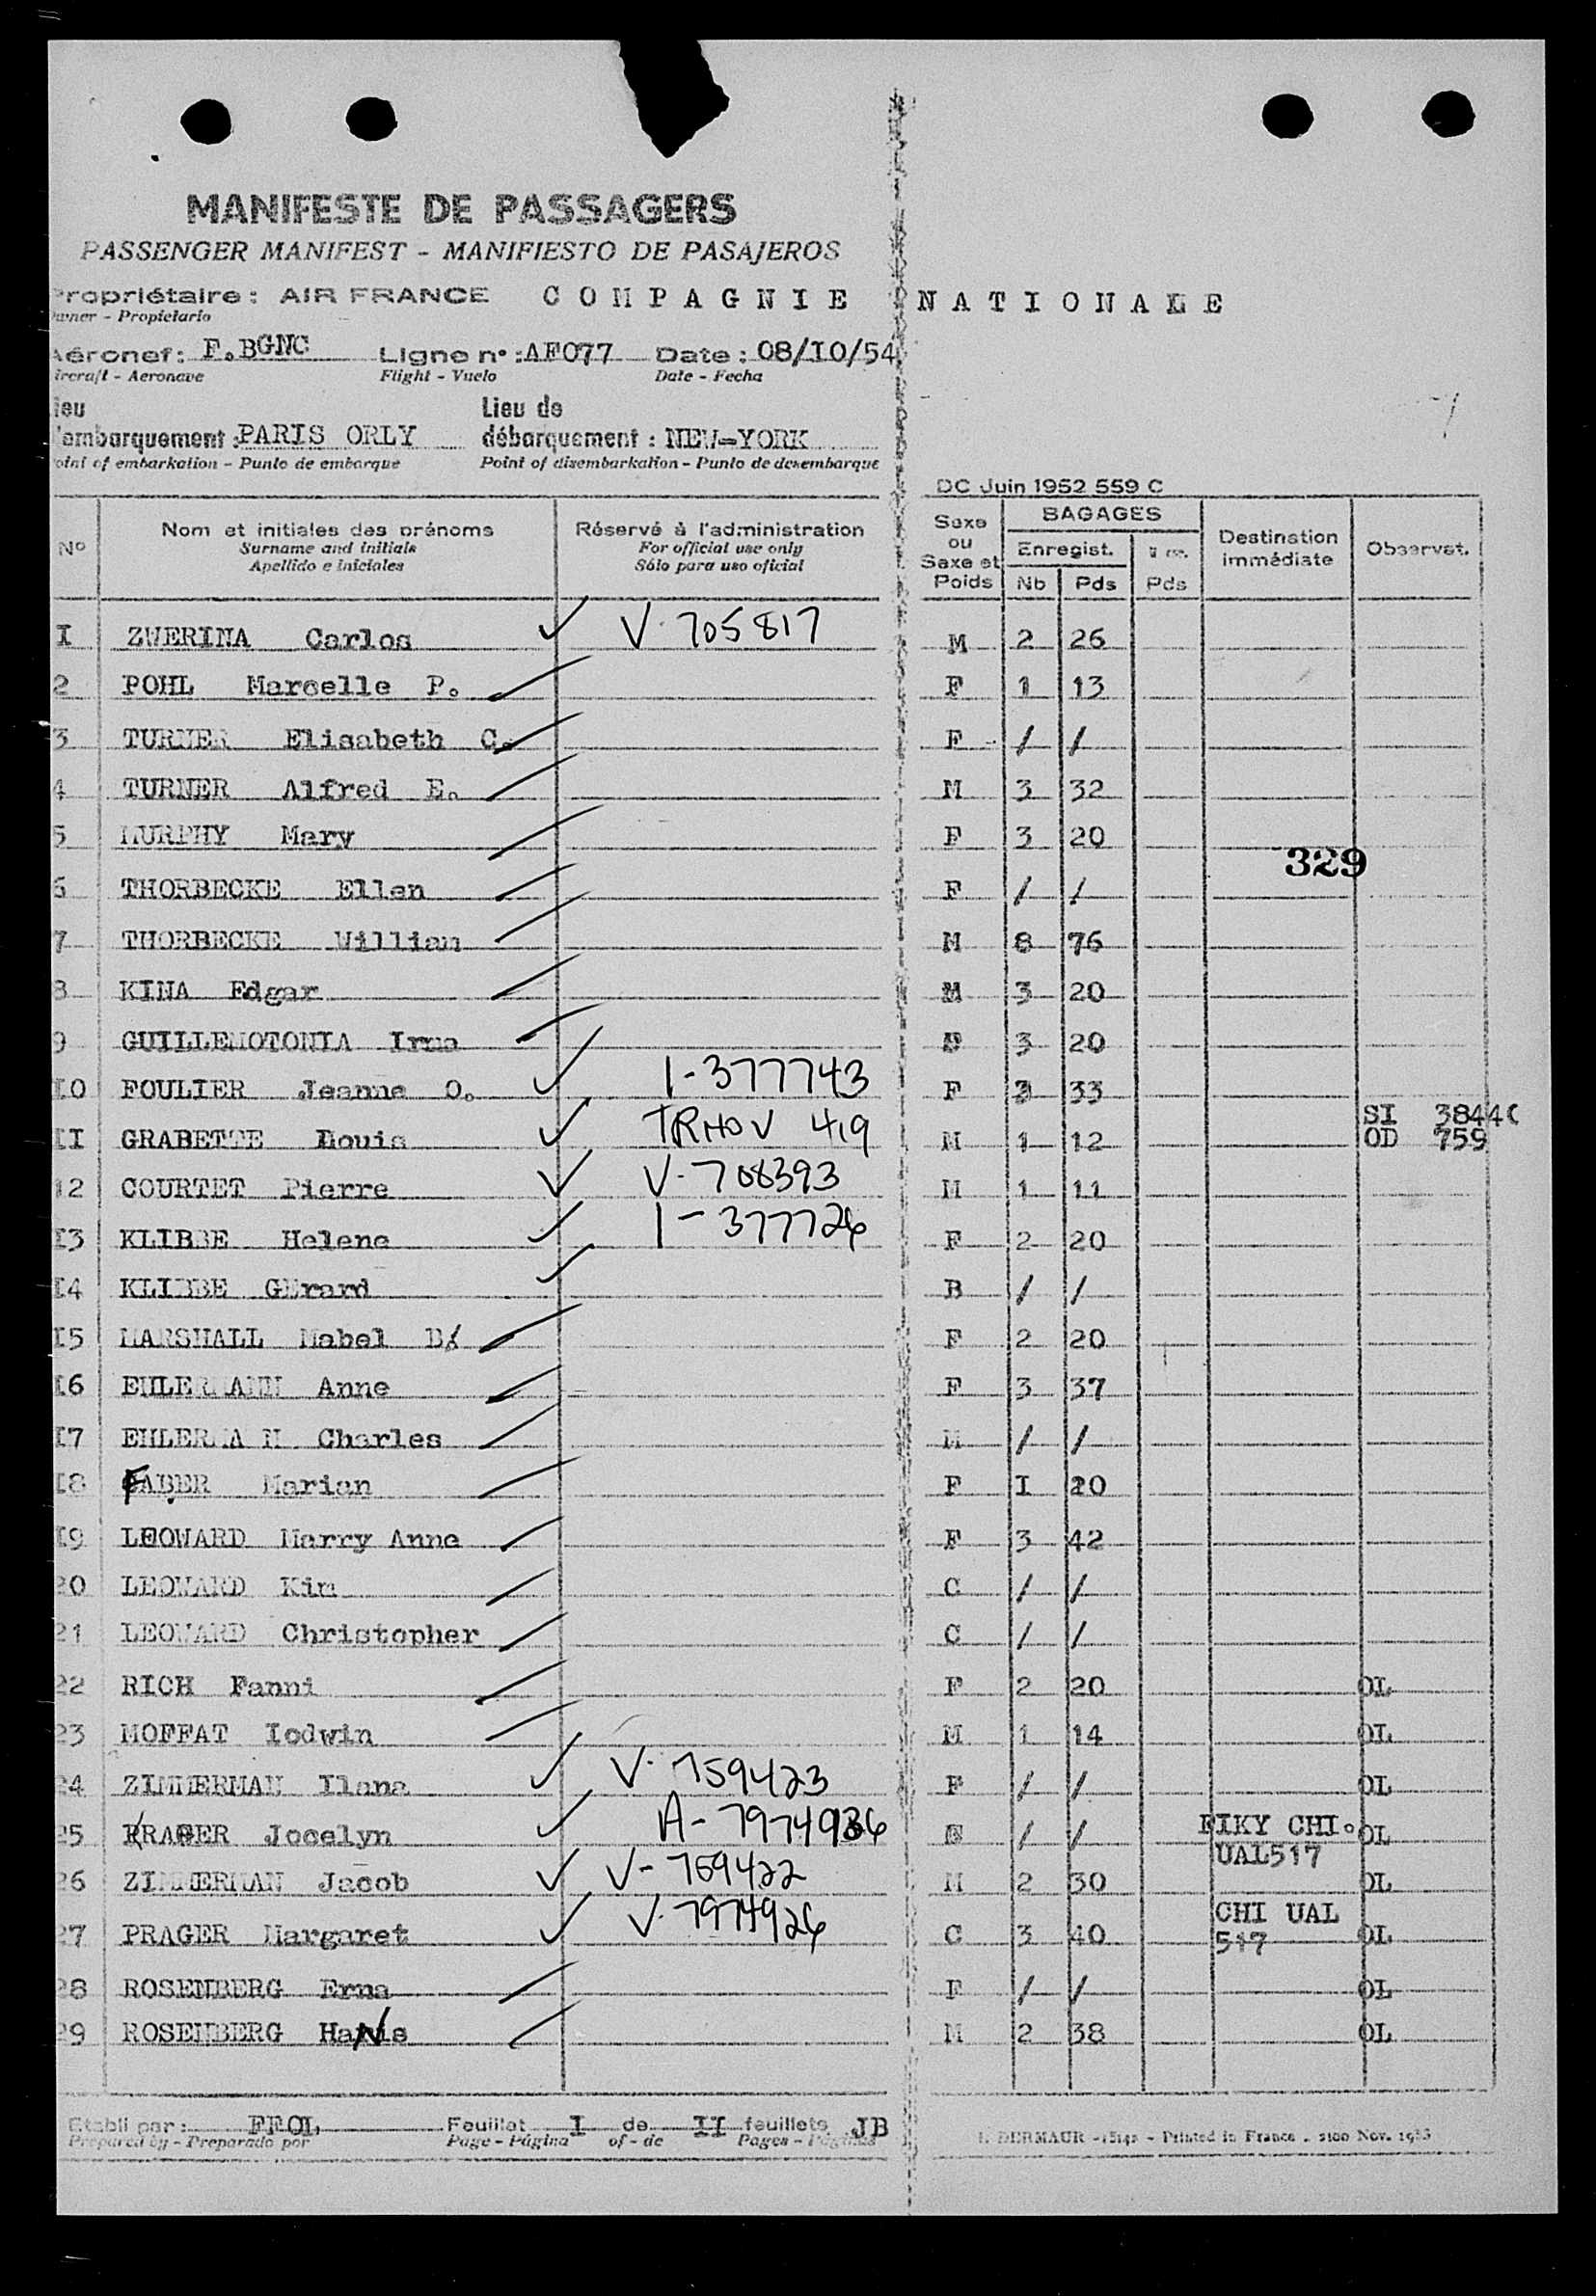 MANIFESTE DE PASSAGERS
PASSENGER MANIFEST - MANIFIESTO DE PASAJEROS
ropriétaire : AIR FRANCE COMPAGNIE NATIONALE
wner - Propietario
Aéronef : F.BGNC Ligne n° : AF077 Date : 08/I0/54
ircraft - Aeronave Flight - Vuelo Date - Fecha
ieu Lieu de
'embarquement : PARIS ORLY débarquement : NEW-YORK
oint of embarkation - Punto de embarque Point of disembarkation - Punto de desembarque
DC Juin 1952 559 C
N° Nom et initiales des prénoms Réservé à l'administration Sexe ou Sexe et Poids BAGAGES Destination immédiate Observat.
Surname and initials For official use only Enregist.
Apellido e iniciales Sólo para uso oficial Nb Pds Pds
I ZWERINA Carlos V-705817 M 2 26
2 POHL Marcelle P. F 1 13
3 TURNER Elisabeth C. F / /
4 TURNER Alfred E. M 3 32
5 MURPHY Mary F 3 20
329
6 THORBECKE Ellen F / /
7 THORBECKE William M 8 76
8 KINA Edgar M 3 20
9 GUILLEMOTONIA Irma 3 20
I0 FOULIER Jeanne O. 1-377743 F 3 33
II GRABETTE Louis TRHOV 419 M 1 12 SI 3844C
OD 759
12 COURTET Pierre V-708393 M 1 11
I3 KLIBBE Helene 1-377726 F 2 20
I4 KLIBBE GErard B / /
I5 MARSHALL Mabel B/ F 2 20
I6 EHLERMANN Anne F 3 37
I7 EHLERMA N Charles M / /
I8 FABER Marian F I 20
I9 LEOWARD Marry Anne F 3 42
20 LEOWARD Kim C / /
21 LEOWARD Christopher C / /
22 RICH Fanni F 2 20 OL
23 MOFFAT Iodwin M 1 14 OL
24 ZIMMERMAN Ilana V-759423 F / / OL
25 PRAGER Jocelyn A-7974936 / / FIKY CHI. OL
UAL517
26 ZIMMERMAN Jacob V-759422 M 2 30 OL
27 PRAGER Margaret V-7974926 C 3 40 CHI UAL 517 OL
28 ROSENBERG Erna F / / OL
29 ROSENBERG HaNs M 2 38 OL
Etabli par : FFOL Feuillet I de II feuillets JB
Prepared by - Preparado por Page - Página of - de Pages - Páginas
I. DERMAUR - Printed in France - 2100 Nov. 1953